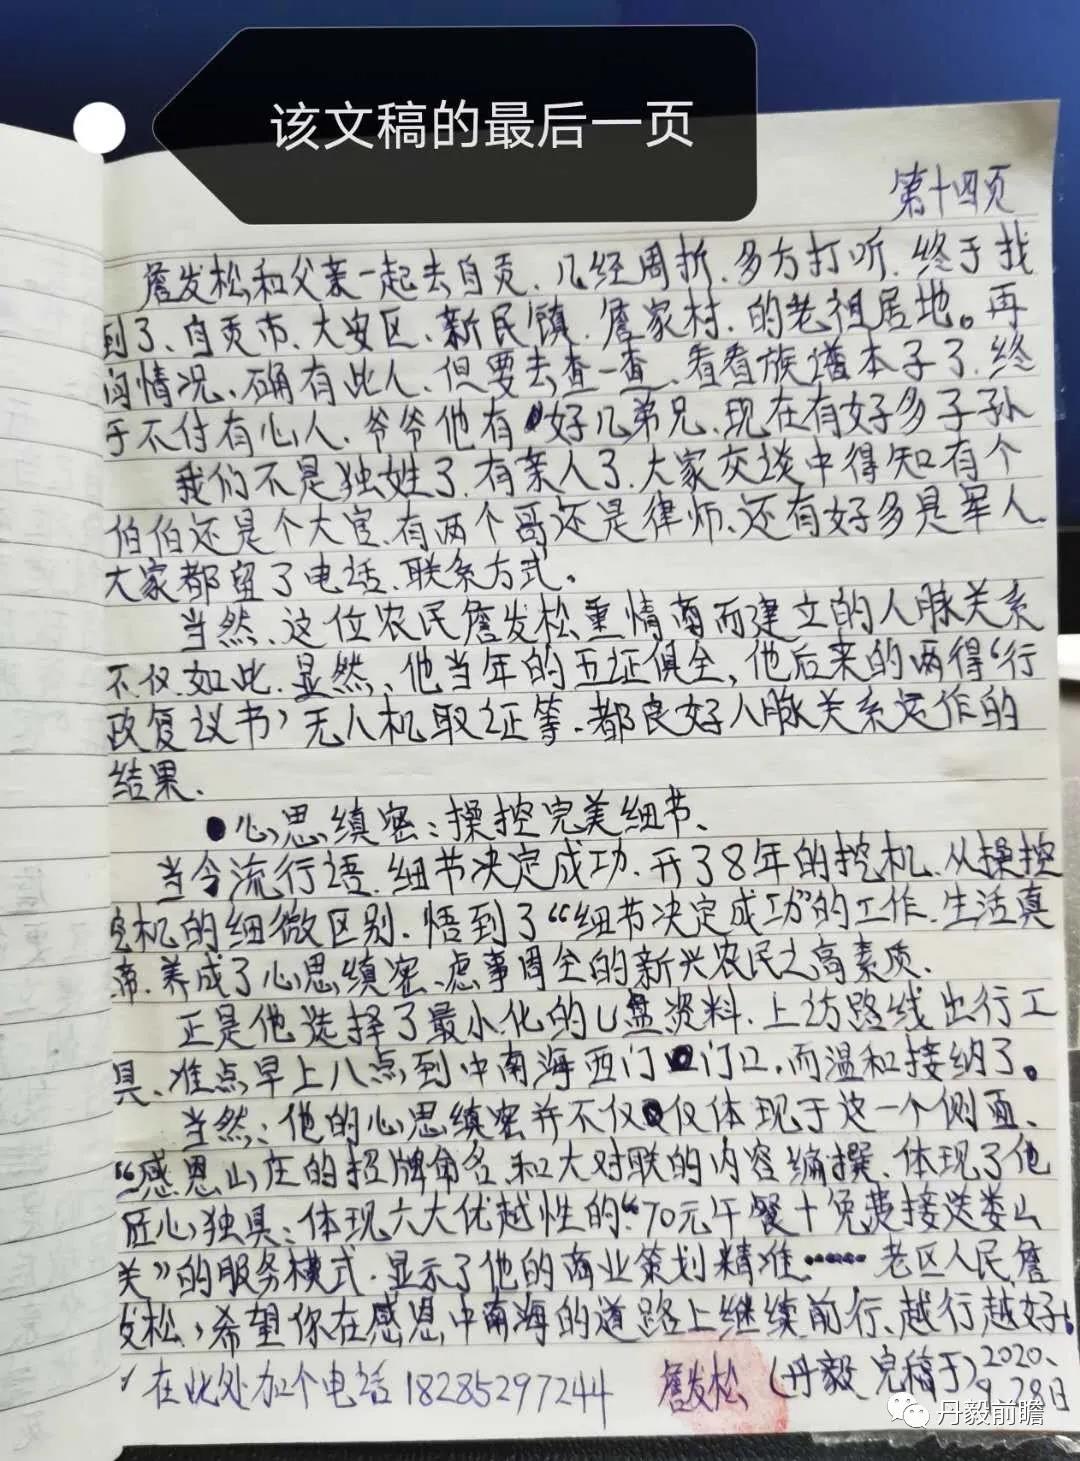 该文稿的最后一页
第十四页
詹发松和父亲一起去自贡、几经周折、多方打听、终于找
到了、自贡市、大安区、新民镇、詹家村、的老祖居地。再
问情况、确有此人、但要去查一查、看看族谱本子了、终
于不付有心人、爷爷他有好几弟兄、现在有好多子孙
我们不是独姓了、有亲人了、大家交谈中得知有个
伯伯还是个大官、有两个哥还是律师、还有好多是军人
大家都留了电话、联系方式。
当然、这位农民詹发松重情商而建立的人脉关系
不仅如此、显然、他当年的五证俱全、他后来的两得“行
政复议书”无人机取证等、都良好人脉关系运作的
结果、
●心思缜密：操控完美细节、
当今流行语、细节决定成功、开了8年的挖机、从操控
挖机的细微区别、悟到了“细节决定成功”的工作、生活真
谛、养成了心思缜密、虑事周全的新兴农民之高素质、
正是他选择了最小化的U盘资料、上访路线出行工
具、准点早上八点到中南海西门门口、而温和接纳了。
当然：他的心思缜密并不仅仅体现于这一个侧面、
“感恩山庄的招牌命名、和大对联的内容编撰、体现了他
匠心独具：体现六大优越性的“70元午餐十免费接送娄山
关”的服务模式、显示了他的商业策划精准……老区人民詹
发松，希望你在感恩中南海的道路上继续前行、越行越好！
√在此处加个电话 18285297244 詹发松（丹毅 完稿于）2020、
9、28日
丹毅前瞻